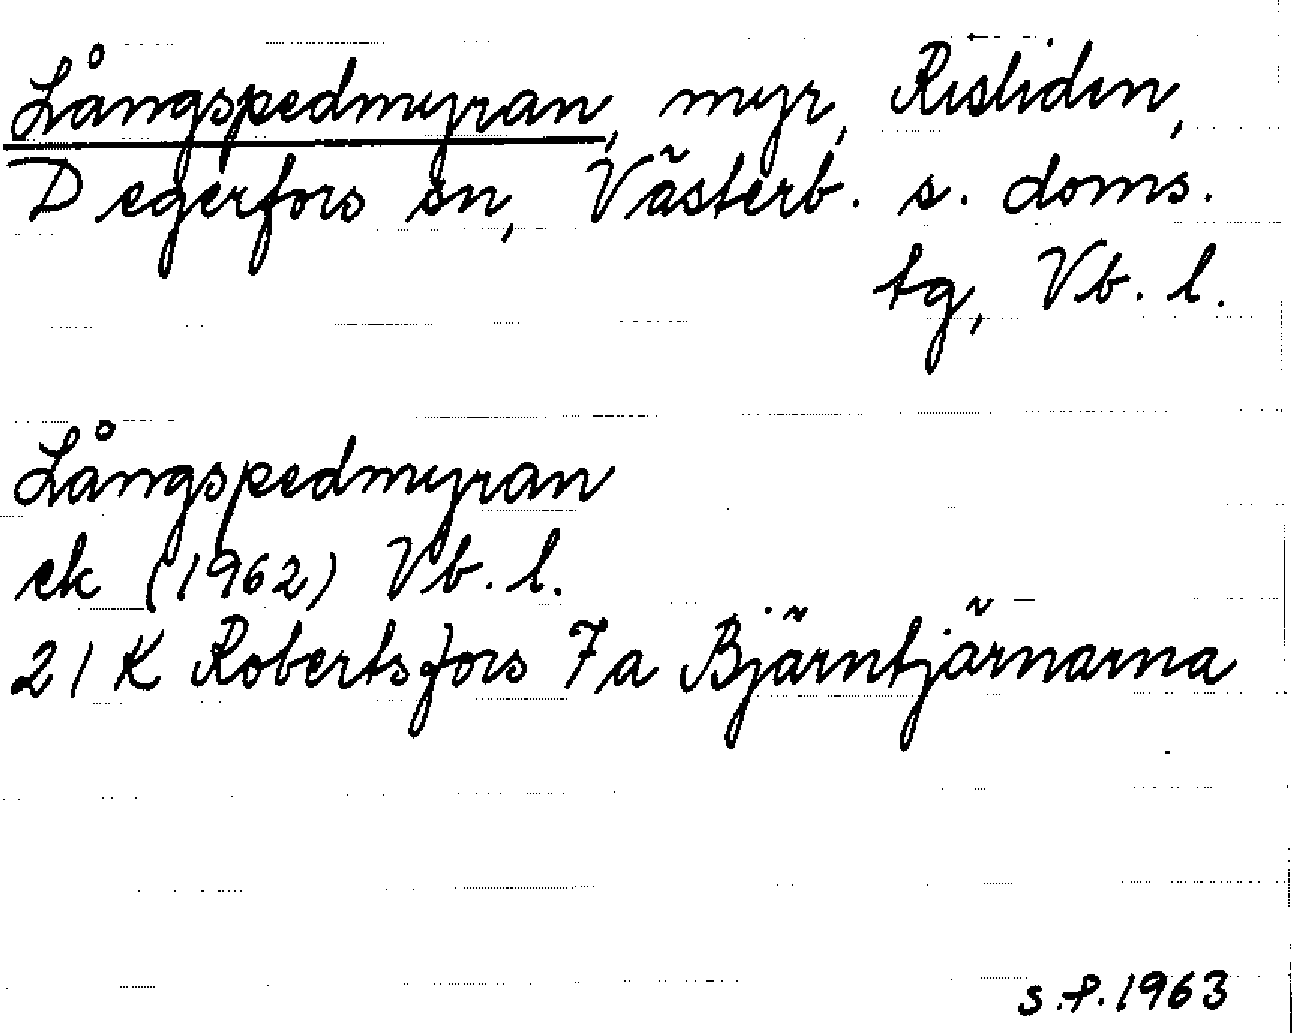 Långspedmyran, myr, Risliden,
Degerfors sn, Västerb. s. doms.
tg, Vb. l.
Långspedmyran
ek (1962) Vb. l.
21 K Robertsfors 7 a Bjärntjärnarna
s.f. 1963